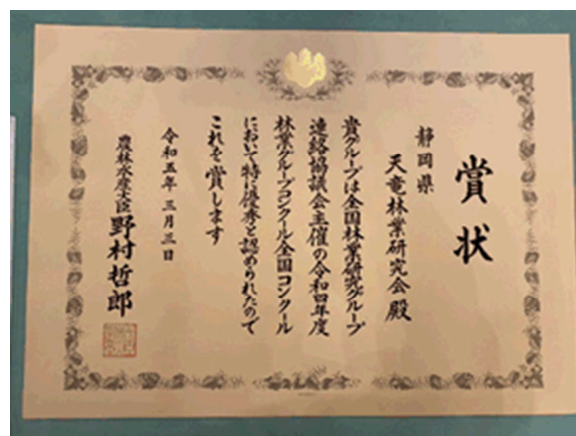 賞状
静岡県
天竜林業研究会殿
貴グループは全国林業研究グループ
連絡協議会主催の令和四年度
林業グループコンクール全国コンクール
において特に優秀と認められたので
これを賞します
令和五年三月三日
農林水産大臣 野村哲郎